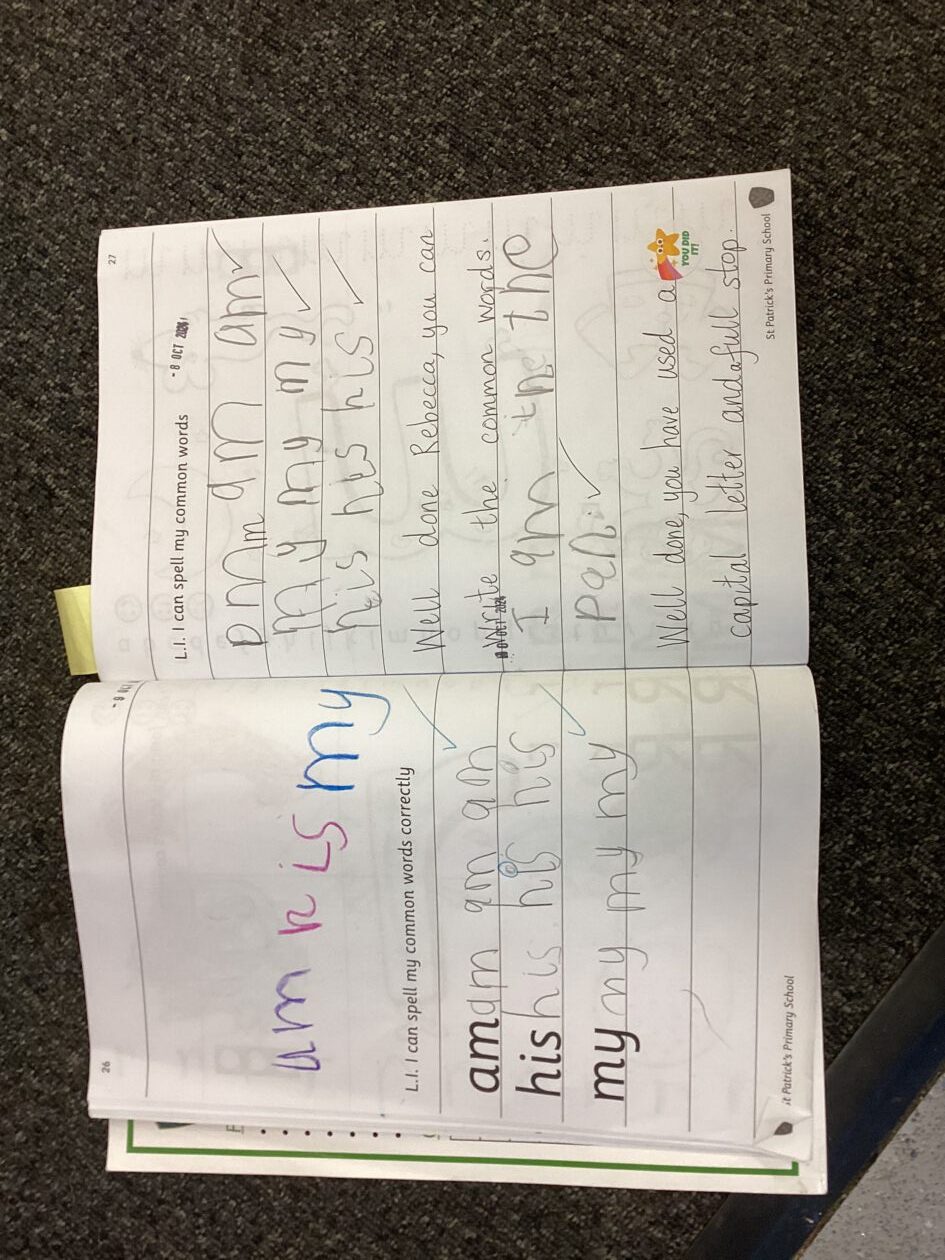 26
- 8 OCT
am his my
L.I. I can spell my common words correctly
am am am am
his his his his
my my my my
St Patrick's Primary School
27
- 8 OCT 2024
L.I. I can spell my common words
am am am
my my my
his his his
Well done Rebecca, you can
write the common words.
OCT 2024
I am the the
pan.
Well done, you have used a
capital letter and a full stop.
YOU DID IT!
St Patrick's Primary School